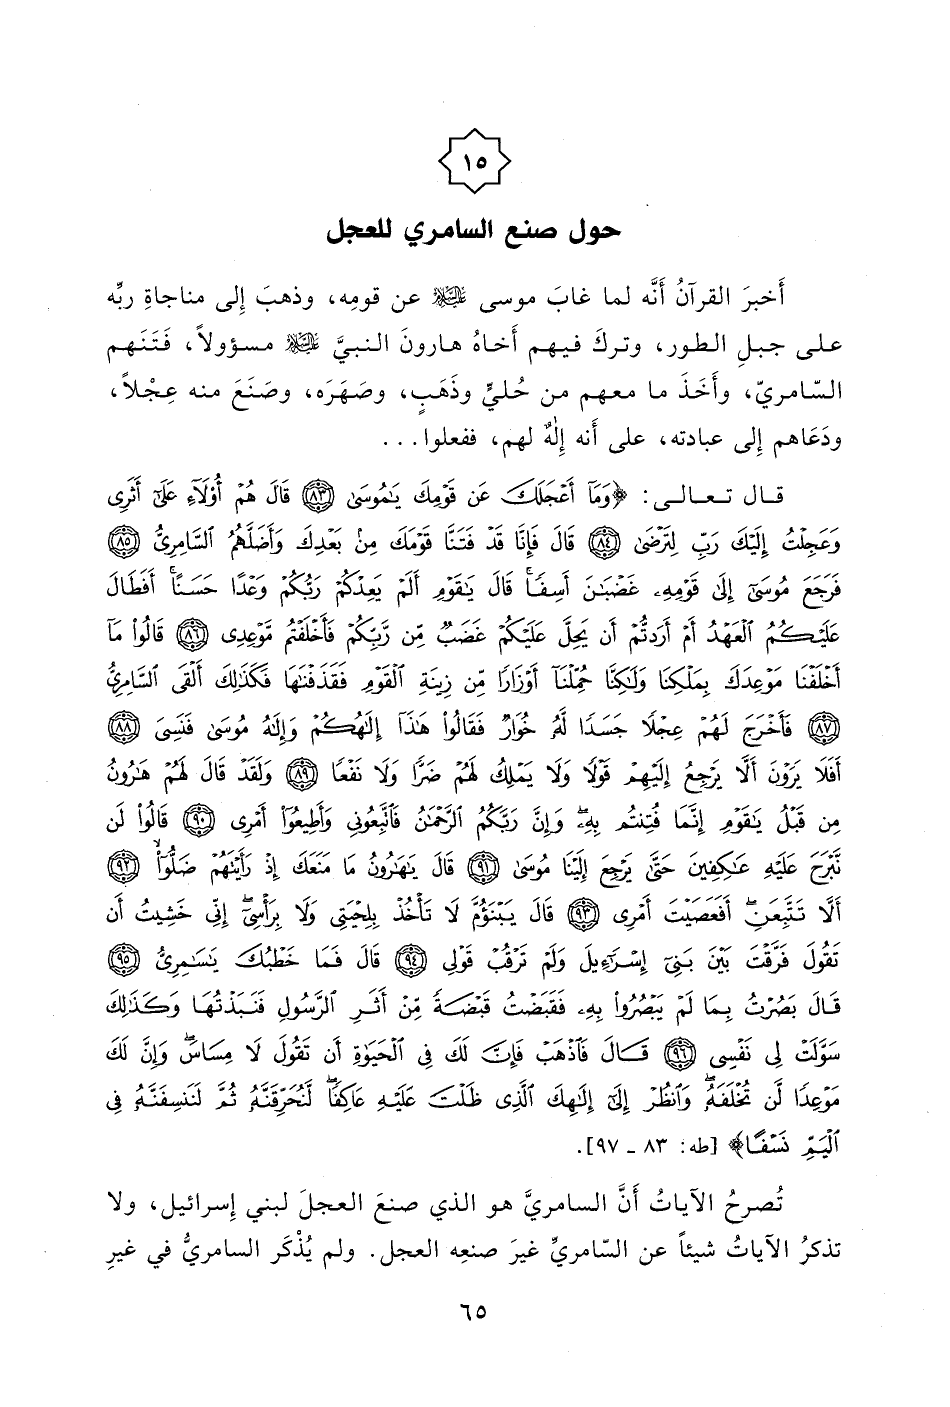 ١٥
حول صنع السامري للعجل
أَخبرَ القرآنُ أنَّه لما غابَ موسى عليه السلام عن قومِه، وذهبَ إلى مناجاةِ ربِّه
على جبلِ الطور، وتركَ فيهم أخاهُ هارونَ النبيَّ عليه السلام مسؤولاً، فَتَنَهم
السّامريّ، وأَخَذَ ما معهم من حُليٍّ وذَهَبٍ، وصَهَرَه، وصَنَعَ منه عِجْلاً،
ودَعَاهم إلى عبادته، على أنه إِلٰهٌ لهم، ففعلوا...
قـال تـعـالـى: ﴿وَمَآ أَعْجَلَكَ عَن قَوْمِكَ يَٰمُوسَىٰ ٨٣ قَالَ هُمْ أُوْلَآءِ عَلَىٰٓ أَثَرِى
وَعَجِلْتُ إِلَيْكَ رَبِّ لِتَرْضَىٰ ٨٤ قَالَ فَإِنَّا قَدْ فَتَنَّا قَوْمَكَ مِنۢ بَعْدِكَ وَأَضَلَّهُمُ ٱلسَّامِرِىُّ ٨٥
فَرَجَعَ مُوسَىٰٓ إِلَىٰ قَوْمِهِۦ غَضْبَٰنَ أَسِفًاۚ قَالَ يَٰقَوْمِ أَلَمْ يَعِدْكُمْ رَبُّكُمْ وَعْدًا حَسَنًاۚ أَفَطَالَ
عَلَيْكُمُ ٱلْعَهْدُ أَمْ أَرَدتُّمْ أَن يَحِلَّ عَلَيْكُمْ غَضَبٌ مِّن رَّبِّكُمْ فَأَخْلَفْتُم مَّوْعِدِى ٨٦ قَالُواْ مَآ
أَخْلَفْنَا مَوْعِدَكَ بِمَلْكِنَا وَلَٰكِنَّا حُمِّلْنَآ أَوْزَارًا مِّن زِينَةِ ٱلْقَوْمِ فَقَذَفْنَٰهَا فَكَذَٰلِكَ أَلْقَى ٱلسَّامِرِىُّ
٨٧ فَأَخْرَجَ لَهُمْ عِجْلًا جَسَدًا لَّهُۥ خُوَارٌ فَقَالُواْ هَٰذَآ إِلَٰهُكُمْ وَإِلَٰهُ مُوسَىٰ فَنَسِىَ ٨٨
أَفَلَا يَرَوْنَ أَلَّا يَرْجِعُ إِلَيْهِمْ قَوْلًا وَلَا يَمْلِكُ لَهُمْ ضَرًّا وَلَا نَفْعًا ٨٩ وَلَقَدْ قَالَ لَهُمْ هَٰرُونُ
مِن قَبْلُ يَٰقَوْمِ إِنَّمَا فُتِنتُم بِهِۦۖ وَإِنَّ رَبَّكُمُ ٱلرَّحْمَٰنُ فَٱتَّبِعُونِى وَأَطِيعُوٓاْ أَمْرِى ٩٠ قَالُواْ لَن
نَّبْرَحَ عَلَيْهِ عَٰكِفِينَ حَتَّىٰ يَرْجِعَ إِلَيْنَا مُوسَىٰ ٩١ قَالَ يَٰهَٰرُونُ مَا مَنَعَكَ إِذْ رَأَيْتَهُمْ ضَلُّوٓاْ ٩٢
أَلَّا تَتَّبِعَنِۖ أَفَعَصَيْتَ أَمْرِى ٩٣ قَالَ يَبْنَؤُمَّ لَا تَأْخُذْ بِلِحْيَتِى وَلَا بِرَأْسِىٓۖ إِنِّى خَشِيتُ أَن
تَقُولَ فَرَّقْتَ بَيْنَ بَنِىٓ إِسْرَٰٓءِيلَ وَلَمْ تَرْقُبْ قَوْلِى ٩٤ قَالَ فَمَا خَطْبُكَ يَٰسَٰمِرِىُّ ٩٥
قَالَ بَصُرْتُ بِمَا لَمْ يَبْصُرُواْ بِهِۦ فَقَبَضْتُ قَبْضَةً مِّنْ أَثَرِ ٱلرَّسُولِ فَنَبَذْتُهَا وَكَذَٰلِكَ
سَوَّلَتْ لِى نَفْسِى ٩٦ قَالَ فَٱذْهَبْ فَإِنَّ لَكَ فِى ٱلْحَيَوٰةِ أَن تَقُولَ لَا مِسَاسَۖ وَإِنَّ لَكَ
مَوْعِدًا لَّن تُخْلَفَهُۥۖ وَٱنظُرْ إِلَىٰٓ إِلَٰهِكَ ٱلَّذِى ظَلْتَ عَلَيْهِ عَاكِفًاۖ لَّنُحَرِّقَنَّهُۥ ثُمَّ لَنَنسِفَنَّهُۥ فِى
ٱلْيَمِّ نَسْفًا﴾ [طه: ٨٣ - ٩٧].
تُصرحُ الآياتُ أنَّ السامريَّ هو الذي صنعَ العجلَ لبني إسرائيل، ولا
تذكرُ الآياتُ شيئاً عن السّامريِّ غيرَ صنعِه العجل. ولم يُذْكَر السامريُّ في غيرِ
٦٥